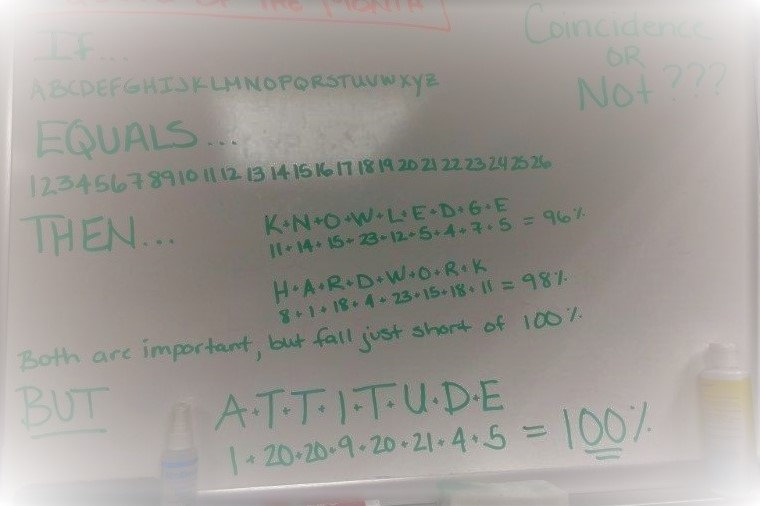 OF THE MONTH
Coincidence
OR
Not ???
If...
ABCDEFGHIJKLMNOPQRSTUVWXYZ
EQUALS...
1 2 3 4 5 6 7 8 9 10 11 12 13 14 15 16 17 18 19 20 21 22 23 24 25 26
THEN...
K+N+O+W+L+E+D+G+E
11+14+15+23+12+5+4+7+5 = 96%
H+A+R+D+W+O+R+K
8+1+18+4+23+15+18+11 = 98%
Both are important, but fall just short of 100%
BUT
A+T+T+I+T+U+D+E
1+20+20+9+20+21+4+5 = 100%